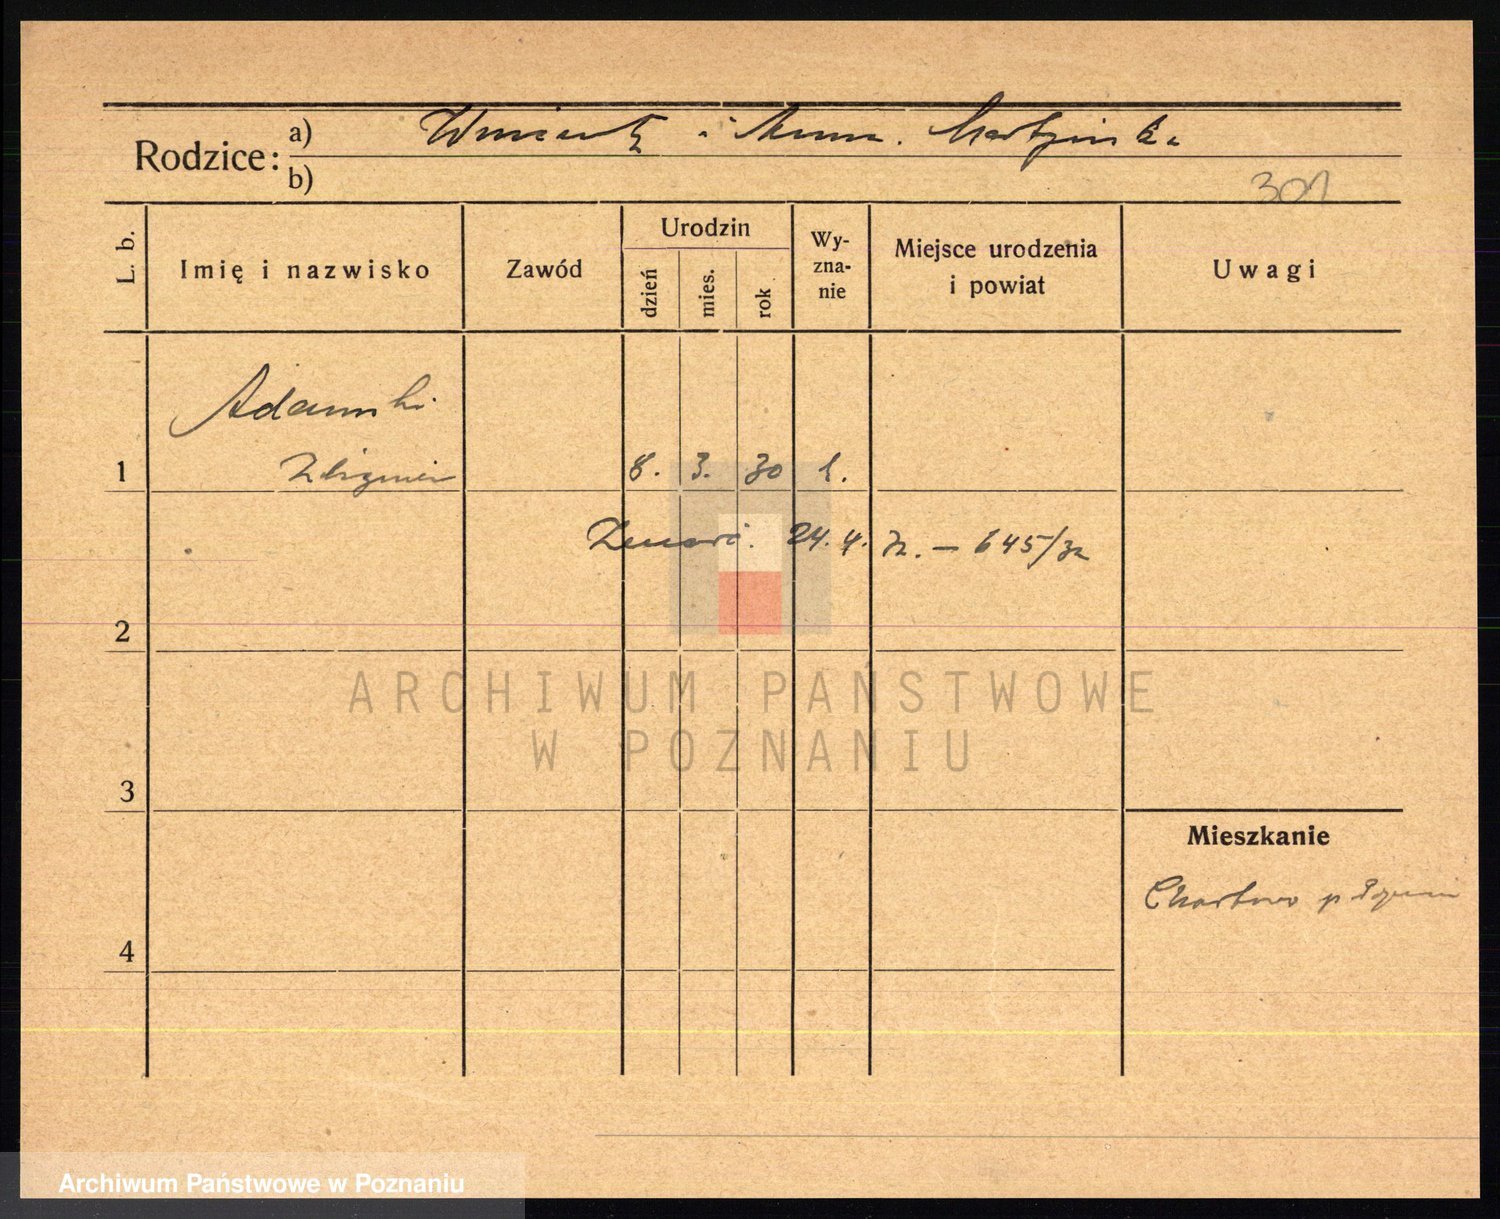 Rodzice: a) Wincenty i Anna.
b)
301
L. b.
Imię i nazwisko
Zawód
Urodzin
dzień
mies.
rok
Wy-
zna-
nie
Miejsce urodzenia
i powiat
Uwagi
Adamski
1 Zbigniew 8. 3. 30
24. 4. 32. – 645/32
2
ARCHIWUM PAŃSTWOWE
W POZNANIU
3
Mieszkanie
Chartowo
4
Archiwum Państwowe w Poznaniu